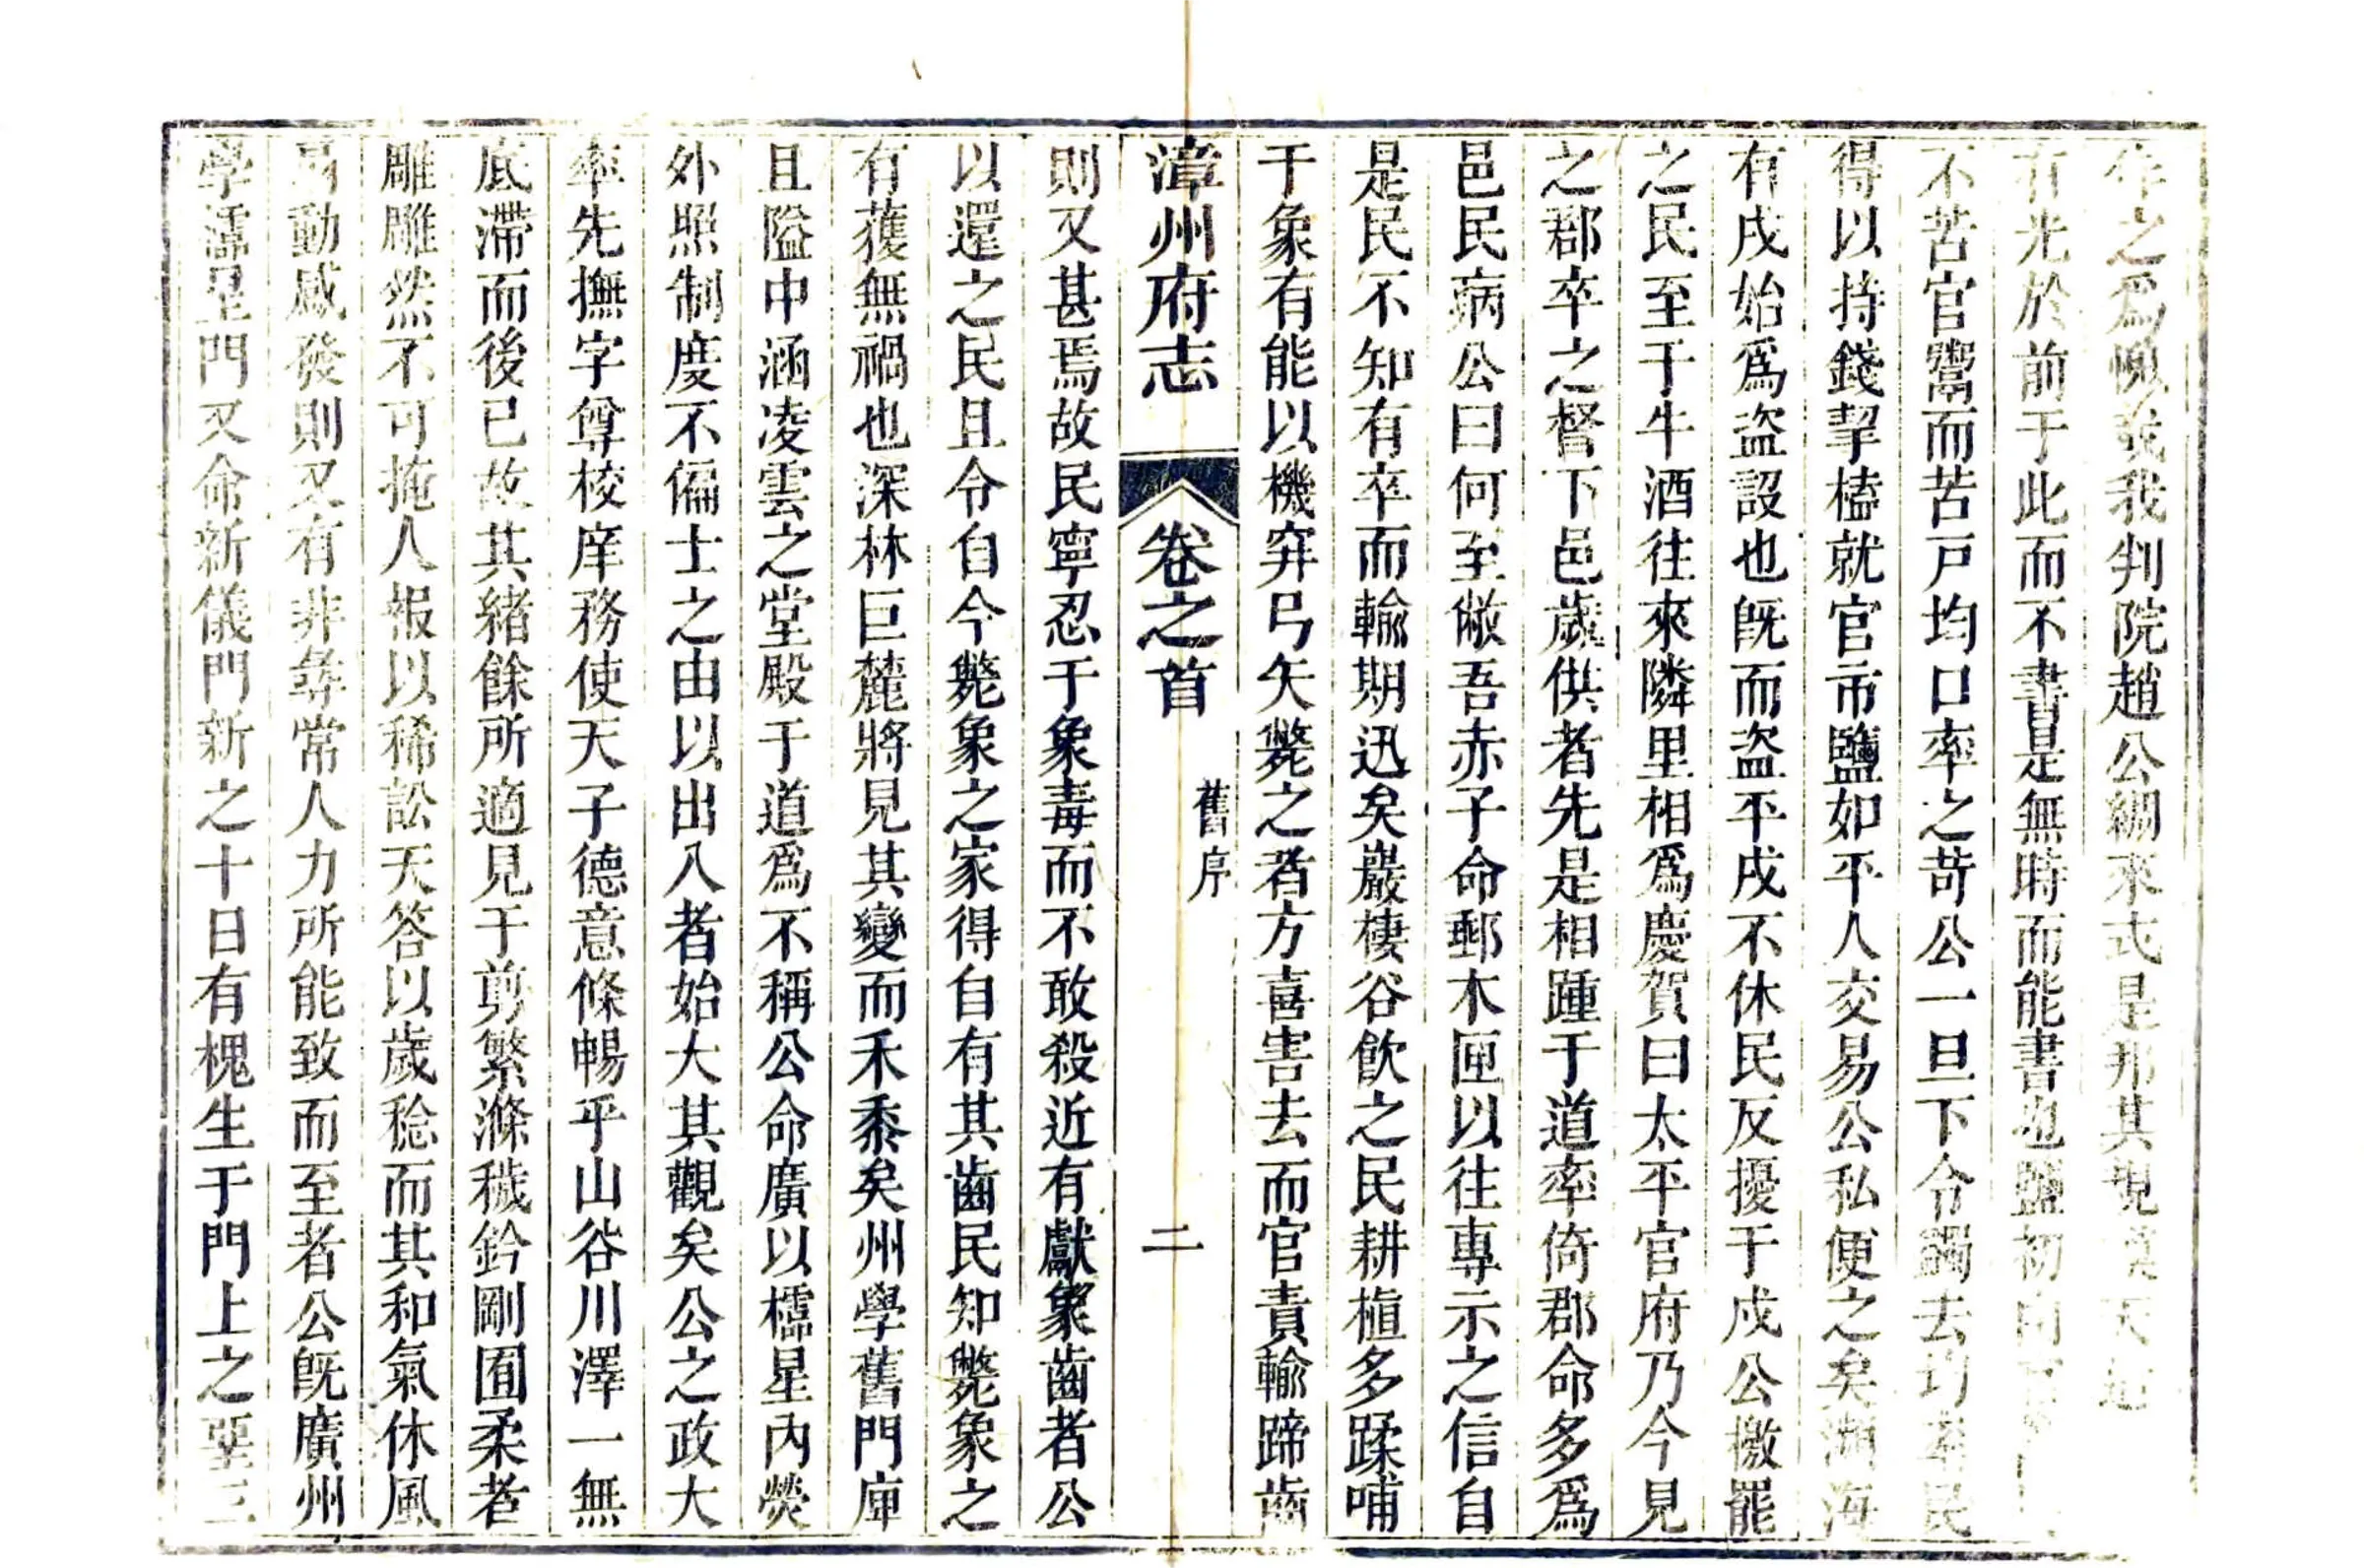 作之爲愧哉我判院趙公綢來式是邦其視天
有光於前于此而不書是無時而能書也鹽初
不苦官鬻而苦戸均口率之苛公一旦下令蠲去均率民
得以持錢挈榼就官市鹽如平人交易公私便之矣瀕海
有戍始爲盗設也旣而盗平戍不休民反擾于戍公檄罷
之民至于牛酒往來隣里相爲慶賀曰太平官府乃今見
之郡卒之督下邑歲供者先是相踵于道率倚郡命多爲
邑民病公曰何至僌吾赤子命郵木匣以往專示之信自
是民不知有卒而輸期迅矣巖棲谷飮之民耕植多蹂哺
于象有能以機穽弓矢斃之者方喜害去而官責輸蹄齒
漳州府志 卷之首 舊序 二
則又甚焉故民寧忍于象毒而不敢殺近有獻象齒者公
以還之民且令自今斃象之家得自有其齒民知斃象之
有獲無禍也深林巨麓將見其變而禾黍矣州學舊門庫
且隘中涵凌雲之堂殿于道爲不稱公命廣以櫺星內熒
外照制度不偏士之由以出入者始大其觀矣公之政大
率先撫字尊校庠務使天子德意條暢乎山谷川澤一無
底滯而後已故其緒餘所適見于剪繁滌穢鈐剛囿柔者
雕雕然不可掩人報以稀訟天答以歲稔而其和氣休風
鬯動感發則又有非尋常人力所能致而至者公旣廣州
學櫺星門又命新儀門新之十日有槐生于門上之堊三